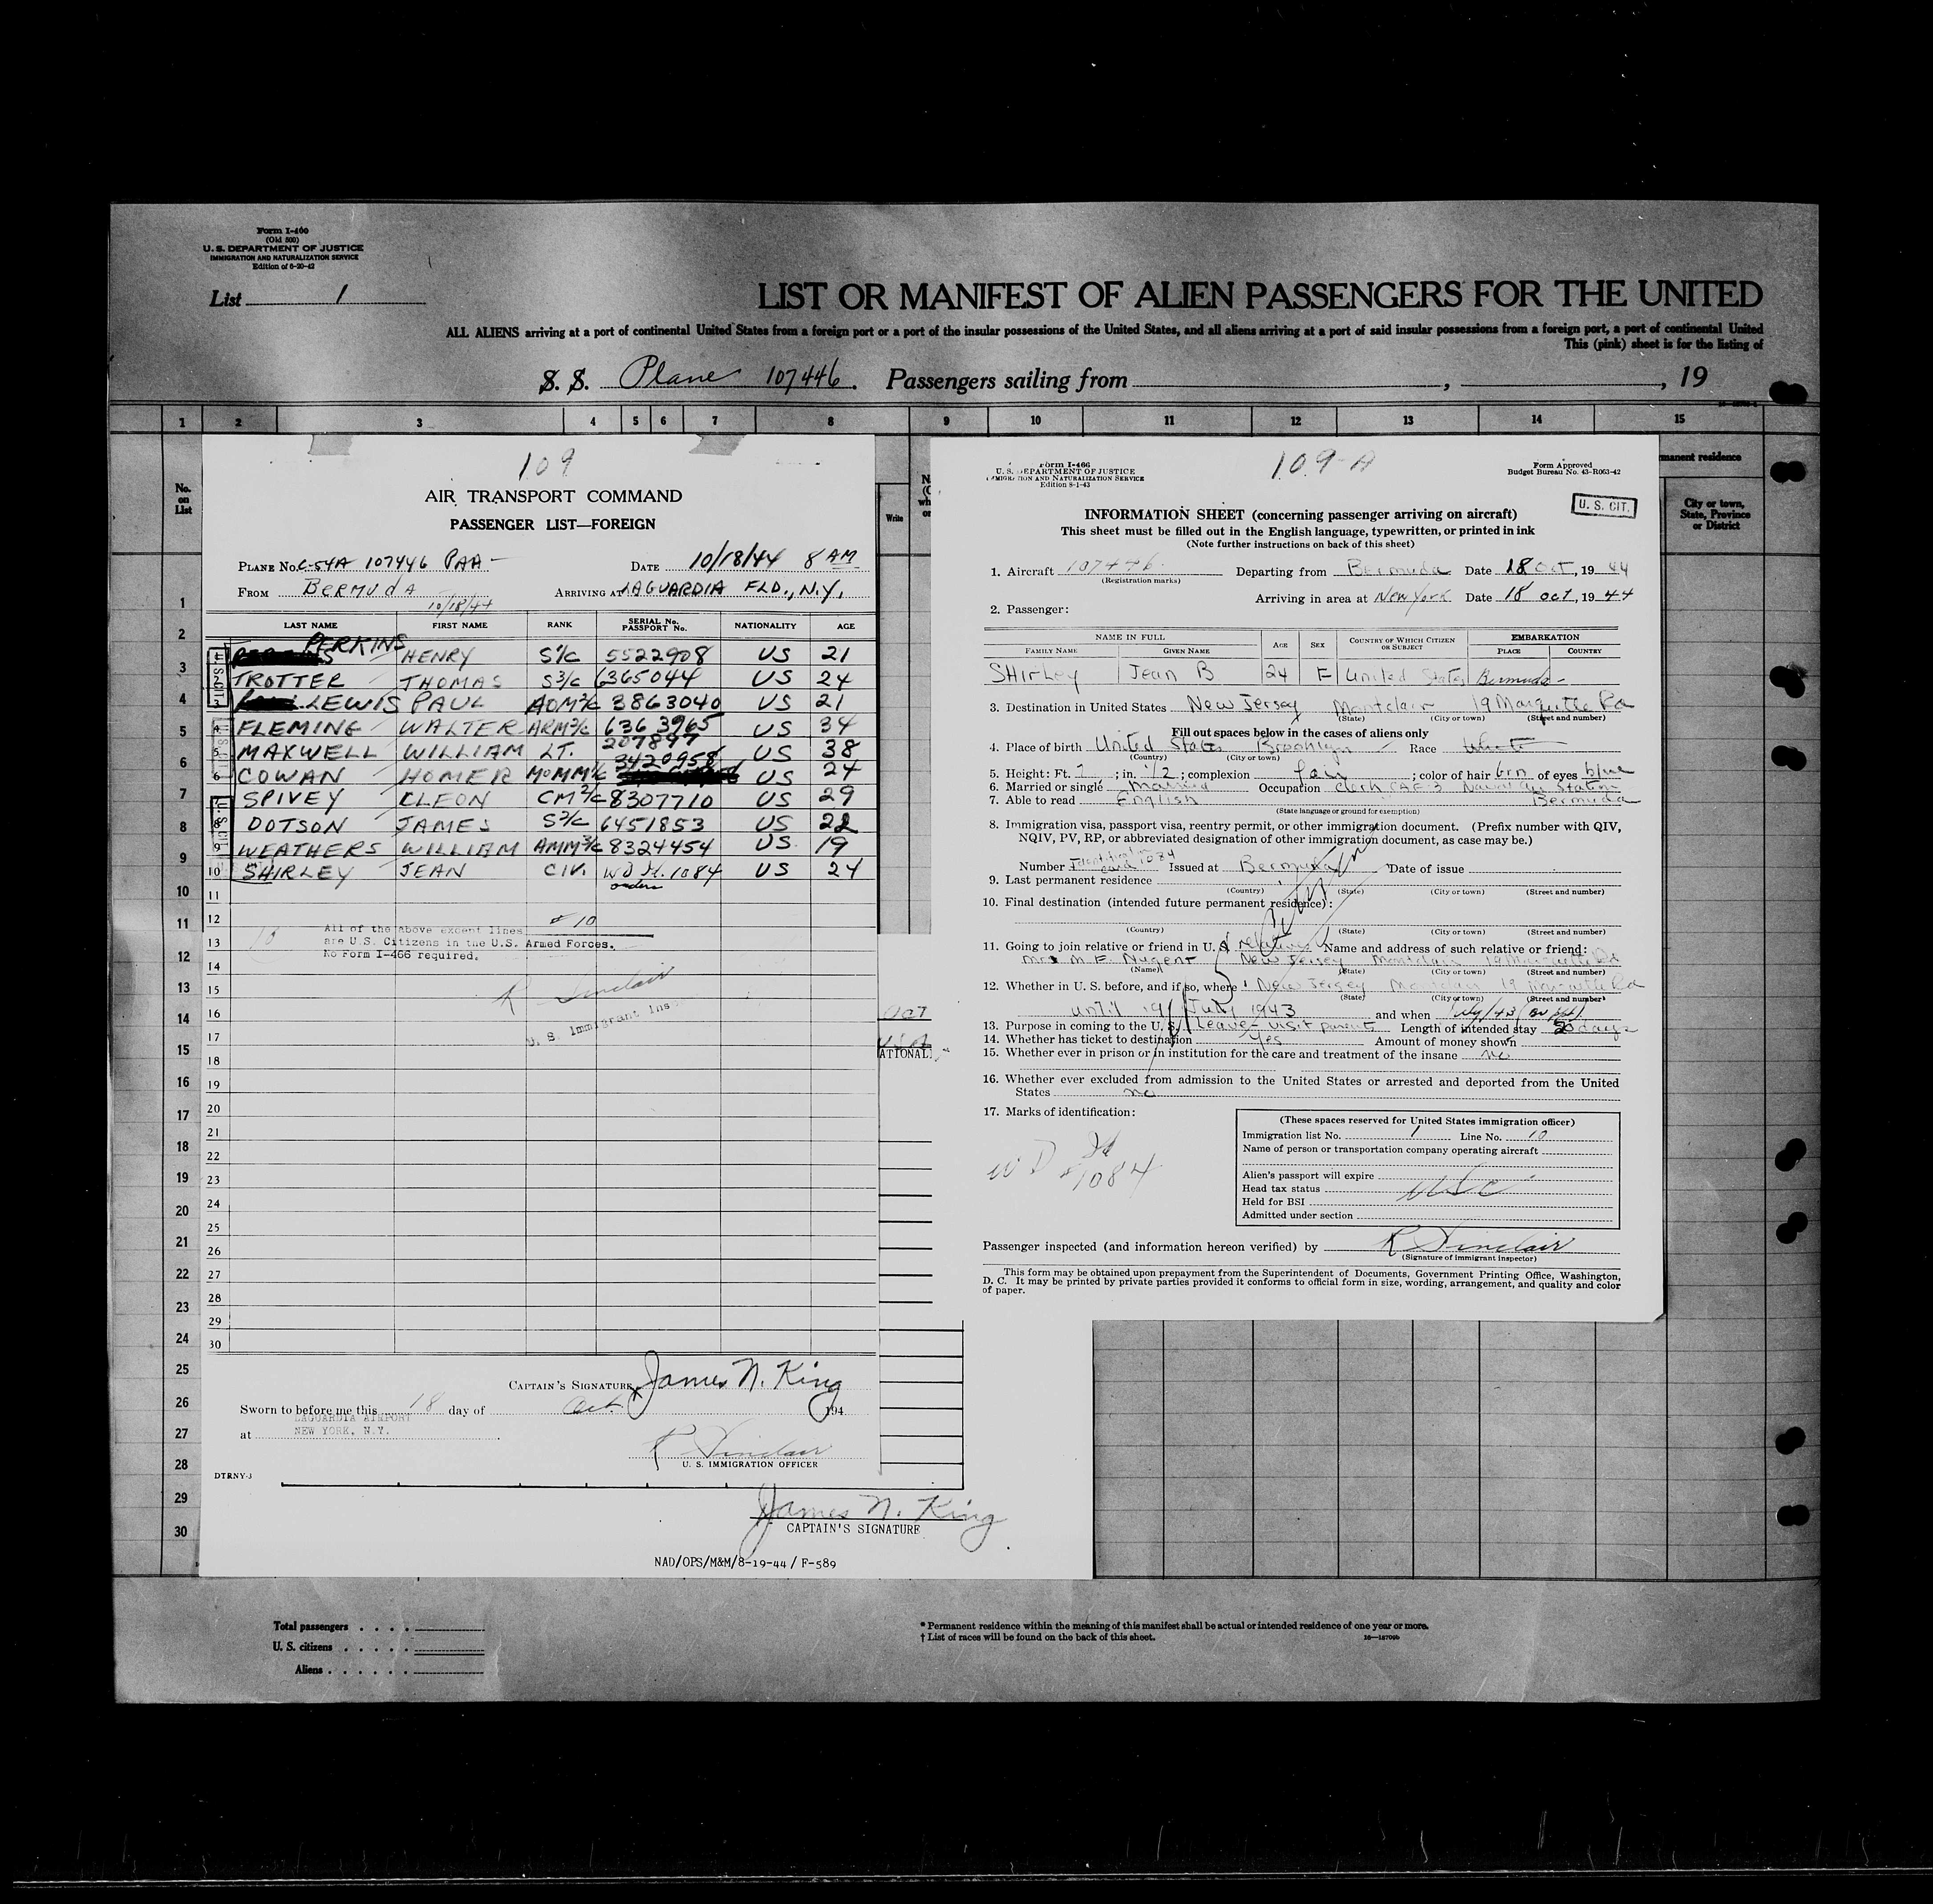 Form I-466
(Old 500)
U. S. DEPARTMENT OF JUSTICE
IMMIGRATION AND NATURALIZATION SERVICE
Edition of 6-20-42
List 1
LIST OR MANIFEST OF ALIEN PASSENGERS FOR THE UNITED
ALL ALIENS arriving at a port of continental United States from a foreign port or a port of the insular possessions of the United States, and all aliens arriving at a port of said insular possessions from a foreign port, a port of continental United
This (pink) sheet is for the listing of
S. S. Plane 107446. Passengers sailing from , , 19
1 2 3 4 5 6 7 8 9 10 11 12 13 14 15
No. on List
Write
manent residence
City or town, State, Province or District
109
AIR TRANSPORT COMMAND
PASSENGER LIST—FOREIGN
PLANE No. C-54A 107446 PAA - DATE 10/18/44 8 AM
FROM BERMUDA ARRIVING AT LAGUARDIA FLD., N.Y.
10/18/44
LAST NAME FIRST NAME RANK SERIAL No. PASSPORT No. NATIONALITY AGE
PERKINS HENRY S1/c 5522908 US 21
TROTTER THOMAS S2/c 6365044 US 24
3 LEWIS PAUL AOM3/c 3863040 US 21
4 FLEMING WALTER ARM2/c 636 3965 US 34
5 MAXWELL WILLIAM LT. 207897 US 38
6 COWAN HOMER MOMM1/c 3420958 US 24
SPIVEY CLEON CM2/c 8307710 US 29
8 DOTSON JAMES S2/c 6451853 US 22
9 WEATHERS WILLIAM AMM3/c 8324454 US 19
10 SHIRLEY JEAN CIV. WD Id. 1084 US 24
orders
11
12 # 10
All of the above except lines
13 are U.S. Citizens in the U.S. Armed Forces.
No Form I-466 required.
14
15 R Sinclair
16
U. S. Immigrant Ins
17
18
19
20
21
22
23
24
25
26
27
28
29
30
CAPTAIN'S SIGNATURE x James N. King
Sworn to before me this 18 day of Oct 194
LAGUARDIA AIRPORT
at NEW YORK, N.Y.
R Sinclair
U. S. IMMIGRATION OFFICER
DTRNY-J
James N. King
CAPTAIN'S SIGNATURE
NAD/OPS/M&M/8-19-44 / F-589
OCT
USA
ATIONAL
109-A
Form I-466
U. S. DEPARTMENT OF JUSTICE
IMMIGRATION AND NATURALIZATION SERVICE
Edition 8-1-43
Form Approved
Budget Bureau No. 43-R063-42
U. S. CIT.
INFORMATION SHEET (concerning passenger arriving on aircraft)
This sheet must be filled out in the English language, typewritten, or printed in ink
(Note further instructions on back of this sheet)
1. Aircraft 107446 Departing from Bermuda Date 18 Oct, 19 44
(Registration marks)
Arriving in area at New York Date 18 oct, 19 44
2. Passenger:
NAME IN FULL AGE SEX COUNTRY OF WHICH CITIZEN OR SUBJECT EMBARKATION
FAMILY NAME GIVEN NAME PLACE COUNTRY
SHirley Jean B 24 F United States Bermuda -
3. Destination in United States New Jersey Montclair 19 Marquette Rd
(State) (City or town) (Street and number)
Fill out spaces below in the cases of aliens only
4. Place of birth United States Brooklyn - Race White
(Country) (City or town)
5. Height: Ft. ; in. 1/2; complexion fair; color of hair brn of eyes blue
6. Married or single Married Occupation clerk CAF-3 Naval Air Station
7. Able to read English Bermuda
(State language or ground for exemption)
8. Immigration visa, passport visa, reentry permit, or other immigration document. (Prefix number with QIV,
NQIV, PV, RP, or abbreviated designation of other immigration document, as case may be.)
Number Identification card 1084 Issued at Bermuda Date of issue
9. Last permanent residence
(Country) (State) (City or town) (Street and number)
10. Final destination (intended future permanent residence):
(Country) (State) (City or town) (Street and number)
11. Going to join relative or friend in U. S. relative Name and address of such relative or friend:
Mrs M. E. Nugent New Jersey Montclair 19 Marquette Rd
(Name) (State) (City or town) (Street and number)
12. Whether in U. S. before, and if so, where New Jersey Montclair 19 Marquette Rd
(State) (City or town) (Street and number)
until 19 July 1943 and when July/43
13. Purpose in coming to the U. S. Leave - visit parent Length of intended stay days
14. Whether has ticket to destination Yes Amount of money shown
15. Whether ever in prison or in institution for the care and treatment of the insane no
16. Whether ever excluded from admission to the United States or arrested and deported from the United
States no
17. Marks of identification:
WD Id
#1084
(These spaces reserved for United States immigration officer)
Immigration list No. 1 Line No. 10
Name of person or transportation company operating aircraft
Alien's passport will expire
Head tax status USC
Held for BSI
Admitted under section
Passenger inspected (and information hereon verified) by R Sinclair
(Signature of Immigrant Inspector)
This form may be obtained upon prepayment from the Superintendent of Documents, Government Printing Office, Washington,
D. C. It may be printed by private parties provided it conforms to official form in size, wording, arrangement, and quality and color
of paper.
1
2
3
4
5
6
7
8
9
10
11
12
13
14
15
16
17
18
19
20
21
22
23
24
25
26
27
28
29
30
Total passengers . . . .
U. S. citizens . . . . .
Aliens . . . . . .
* Permanent residence within the meaning of this manifest shall be actual or intended residence of one year or more.
† List of races will be found on the back of this sheet.